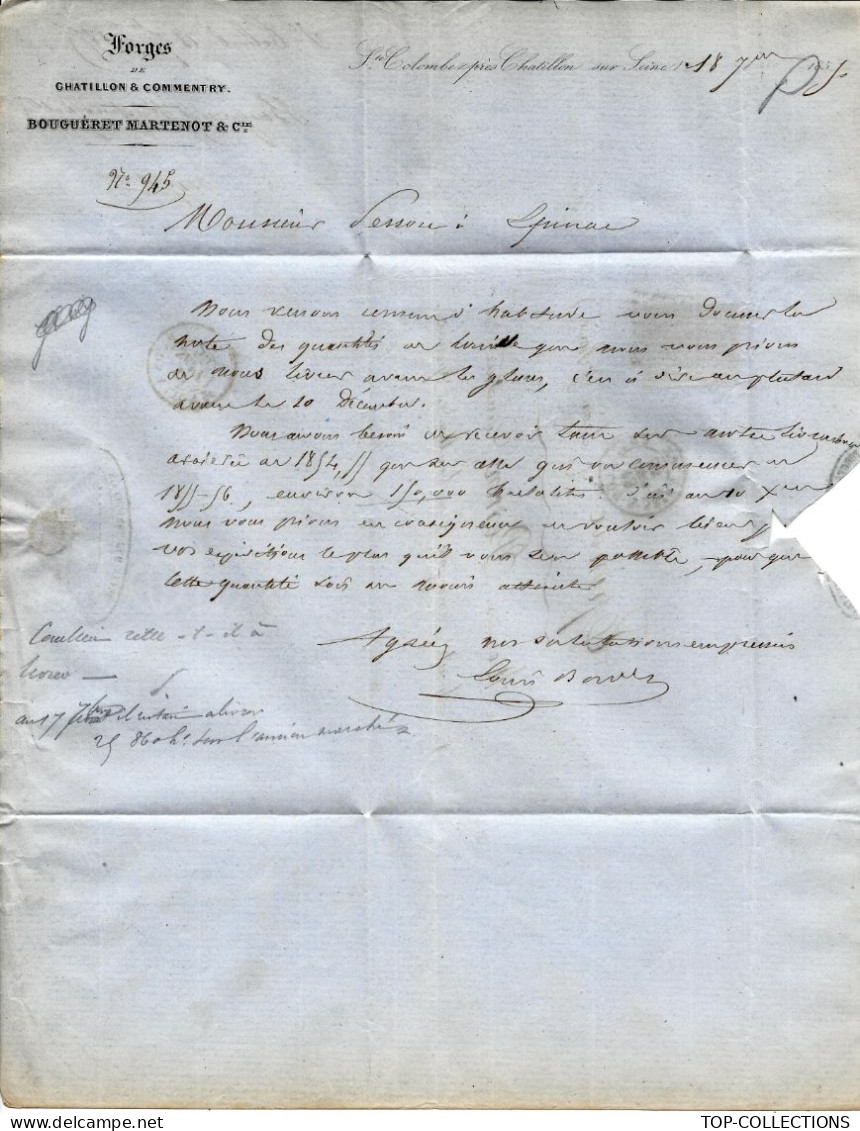 Forges
DE
CHATILLON & COMMENTRY.
BOUGUÉRET MARTENOT & Cie
Ste Colombe près Chatillon sur Seine le 18 7bre 1855
No 945
Monsieur à Epinac
Nous venons comme d'habitude vous donner la
note des quantités de houille que nous vous prions
de nous livrer avant les glaces, c'est à dire au plus tard
avant le 10 Décembre.
Nous avons besoin de recevoir tant sur notre
de 1854/55 que sur celle qui va commencer en
1855-56, environ 150,000 hectolitres d'ici au 10 Xbre
nous vous prions en conséquence de vouloir bien
vos expéditions le plus qu'il vous sera possible, pour que
cette quantité soit au moins atteinte
Agréez nos salutations empressées
Louis
Combien reste-t-il à
livrer
au 17 7bre il restait à livrer
25 860 h. sur l'ancien marché
TOP-COLLECTIONS